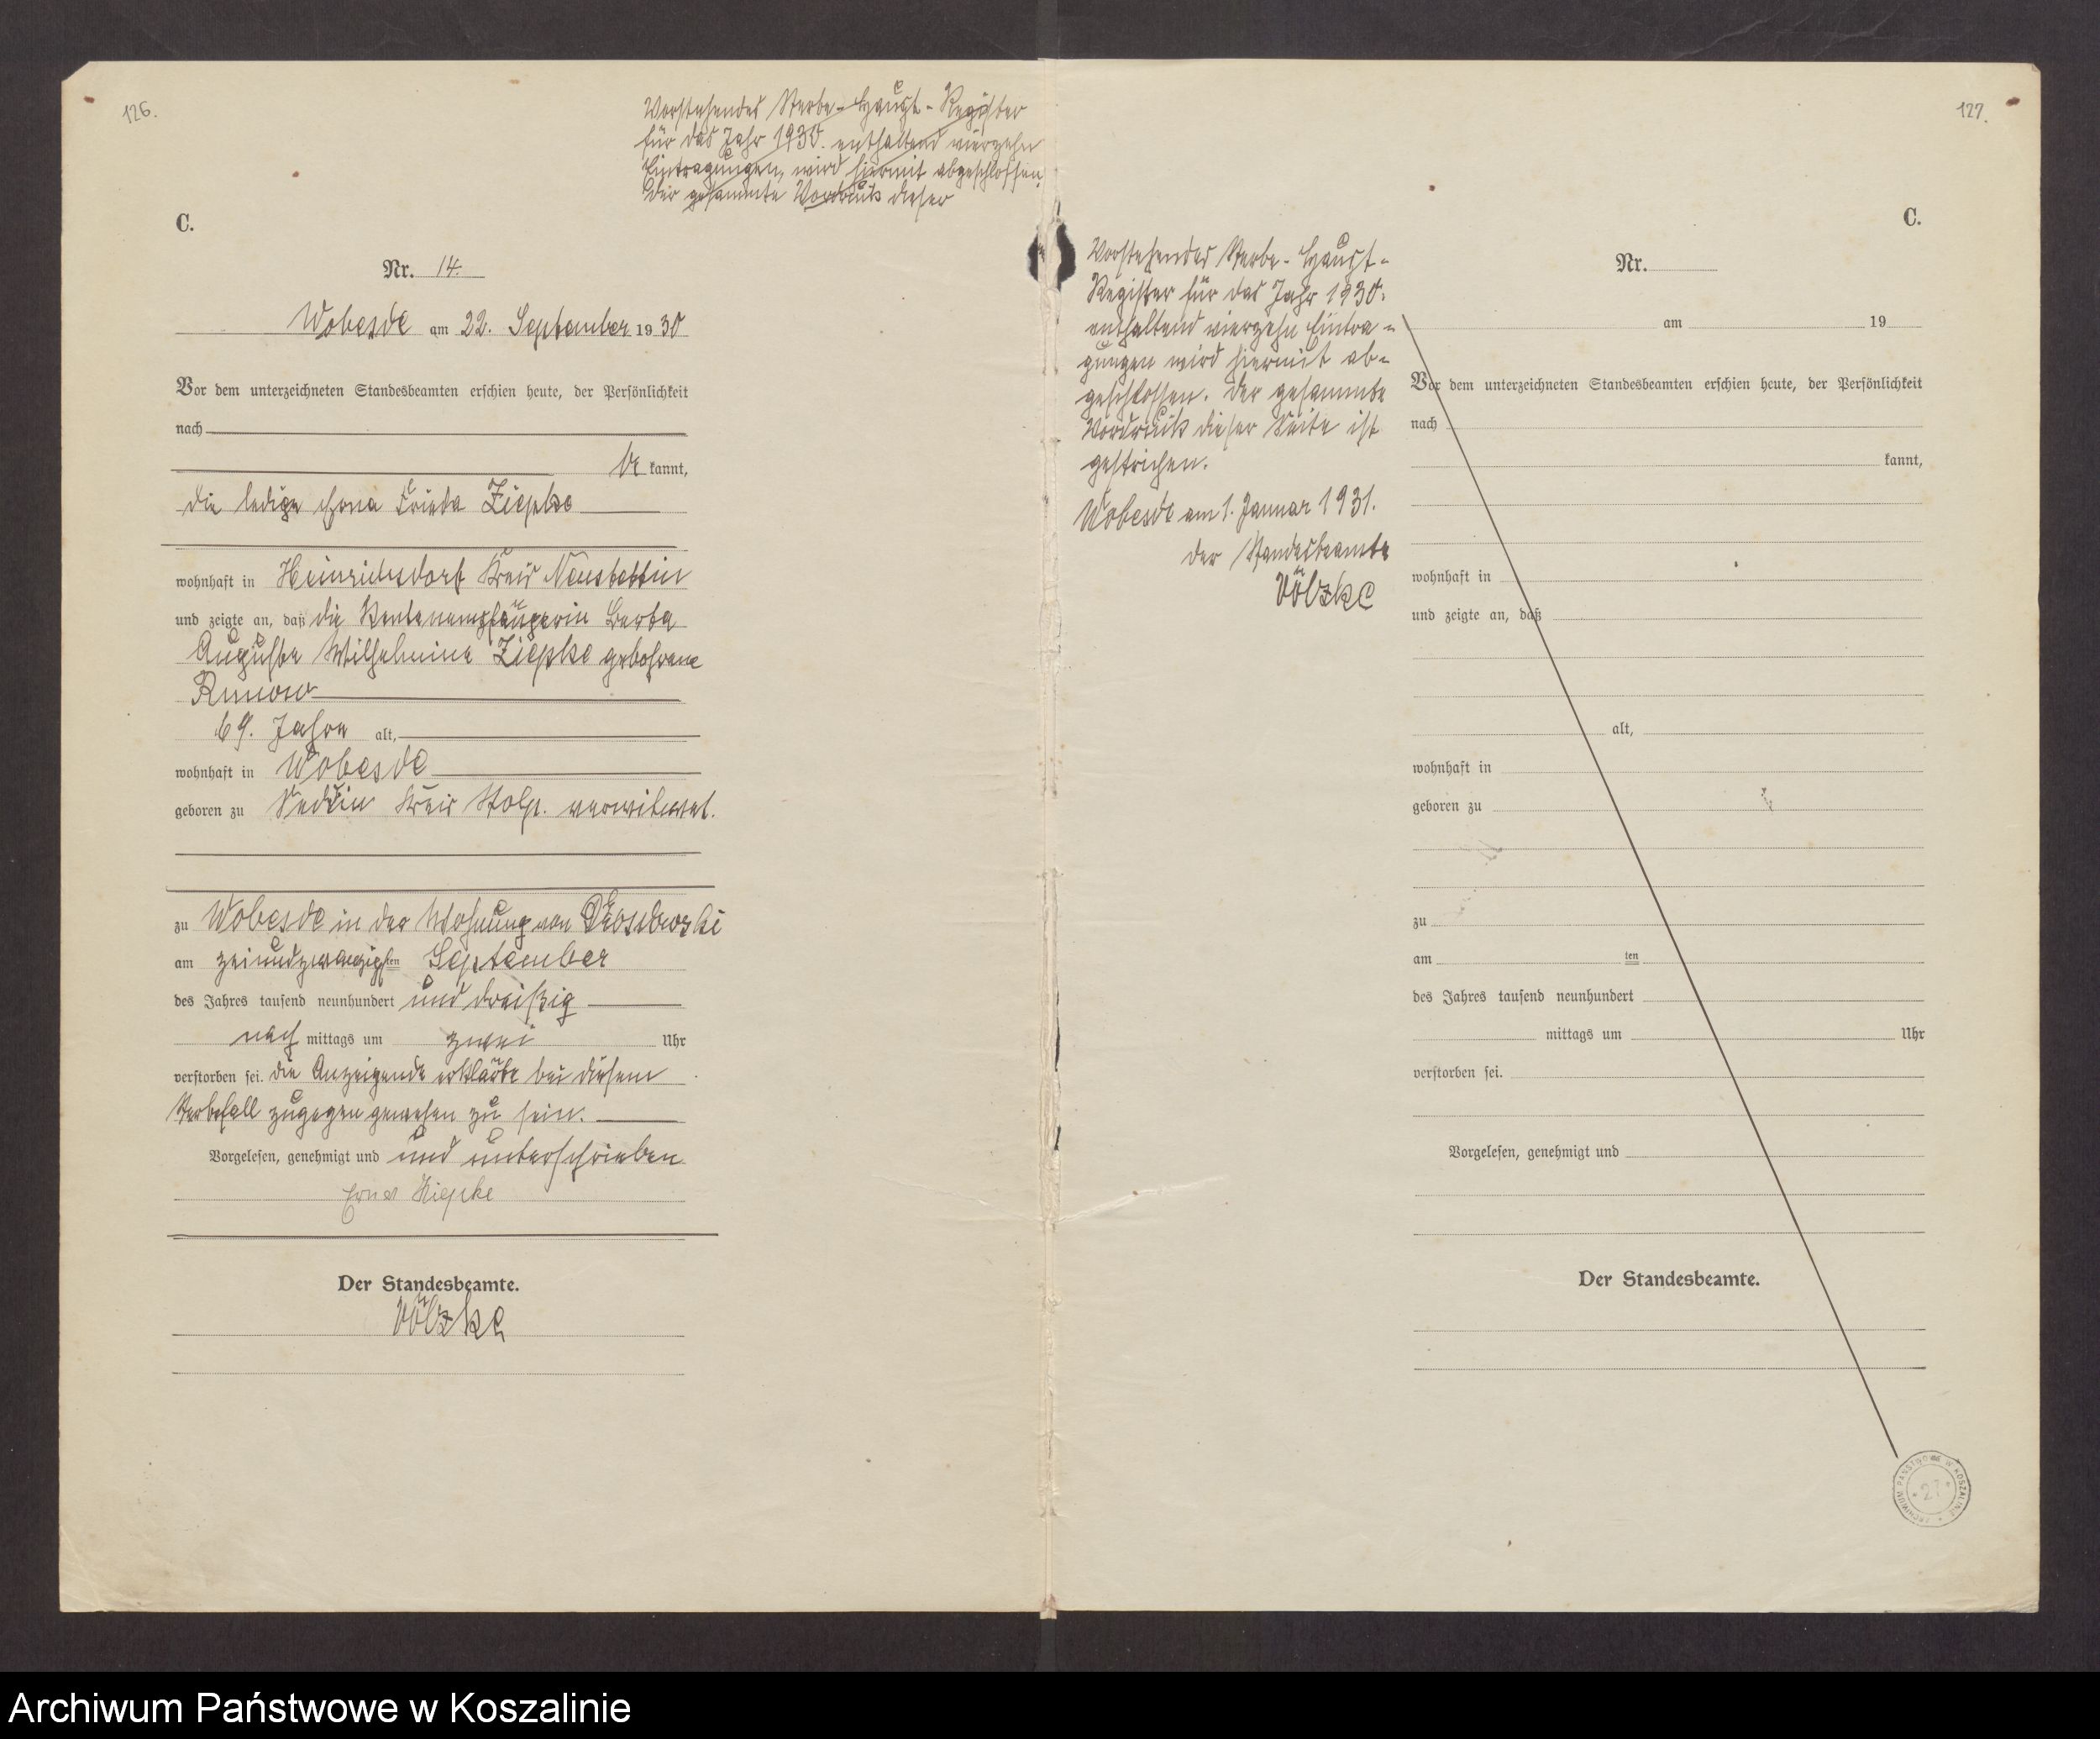 126.
Vorstehendes Sterbe-Haupt-Register
für das Jahr 1930. enthaltend vierzehn
Eintragungen, wird hiermit abgeschlossen.
Der gesammte Vordruck dieser
C.
Nr. 14.
Wobesde am 22. September 1930
Vor dem unterzeichneten Standesbeamten erschien heute, der Persönlichkeit
nach
be kannt,
die ledige Erna Frieda Ziepke
wohnhaft in Heinrichsdorf Kreis Neustettin
und zeigte an, daß die Rentenempfängerin Berta
Auguste Wilhelmine Ziepke gebohrene
69. Jahre alt,
wohnhaft in Wobesde
geboren zu Kreis Stolp. verwitwet.
zu Wobesde in der Wohnung von
am zeiundzwanzigsten September
des Jahres tausend neunhundert und dreißig
nach mittags um zwei Uhr
verstorben sei. die Anzeigende erklärte bei diesem
Sterbefall zugegen gewesen zu sein.
Vorgelesen, genehmigt und und unterschrieben
Erna
Der Standesbeamte.
Völzke
127.
C.
Vorstehendes Sterbe-Haupt-
Register für das Jahr 1930.
enthaltend vierzehn Eintra-
gungen wird hiermit ab-
geschlossen. Der gesammte
Vordruck dieser Seite ist
gestrichen.
Wobesde am 1. Januar 1931.
der Standesbeamte
Völzke
Nr.
am 19
Vor dem unterzeichneten Standesbeamten erschien heute, der Persönlichkeit
nach
kannt,
wohnhaft in
und zeigte an, daß
alt,
wohnhaft in
geboren zu
zu
am ten
des Jahres tausend neunhundert
mittags um Uhr
verstorben sei.
Vorgelesen, genehmigt und
Der Standesbeamte.
ARCHIWUM PAŃSTWOWE W KOSZALINIE
27
Archiwum Państwowe w Koszalinie